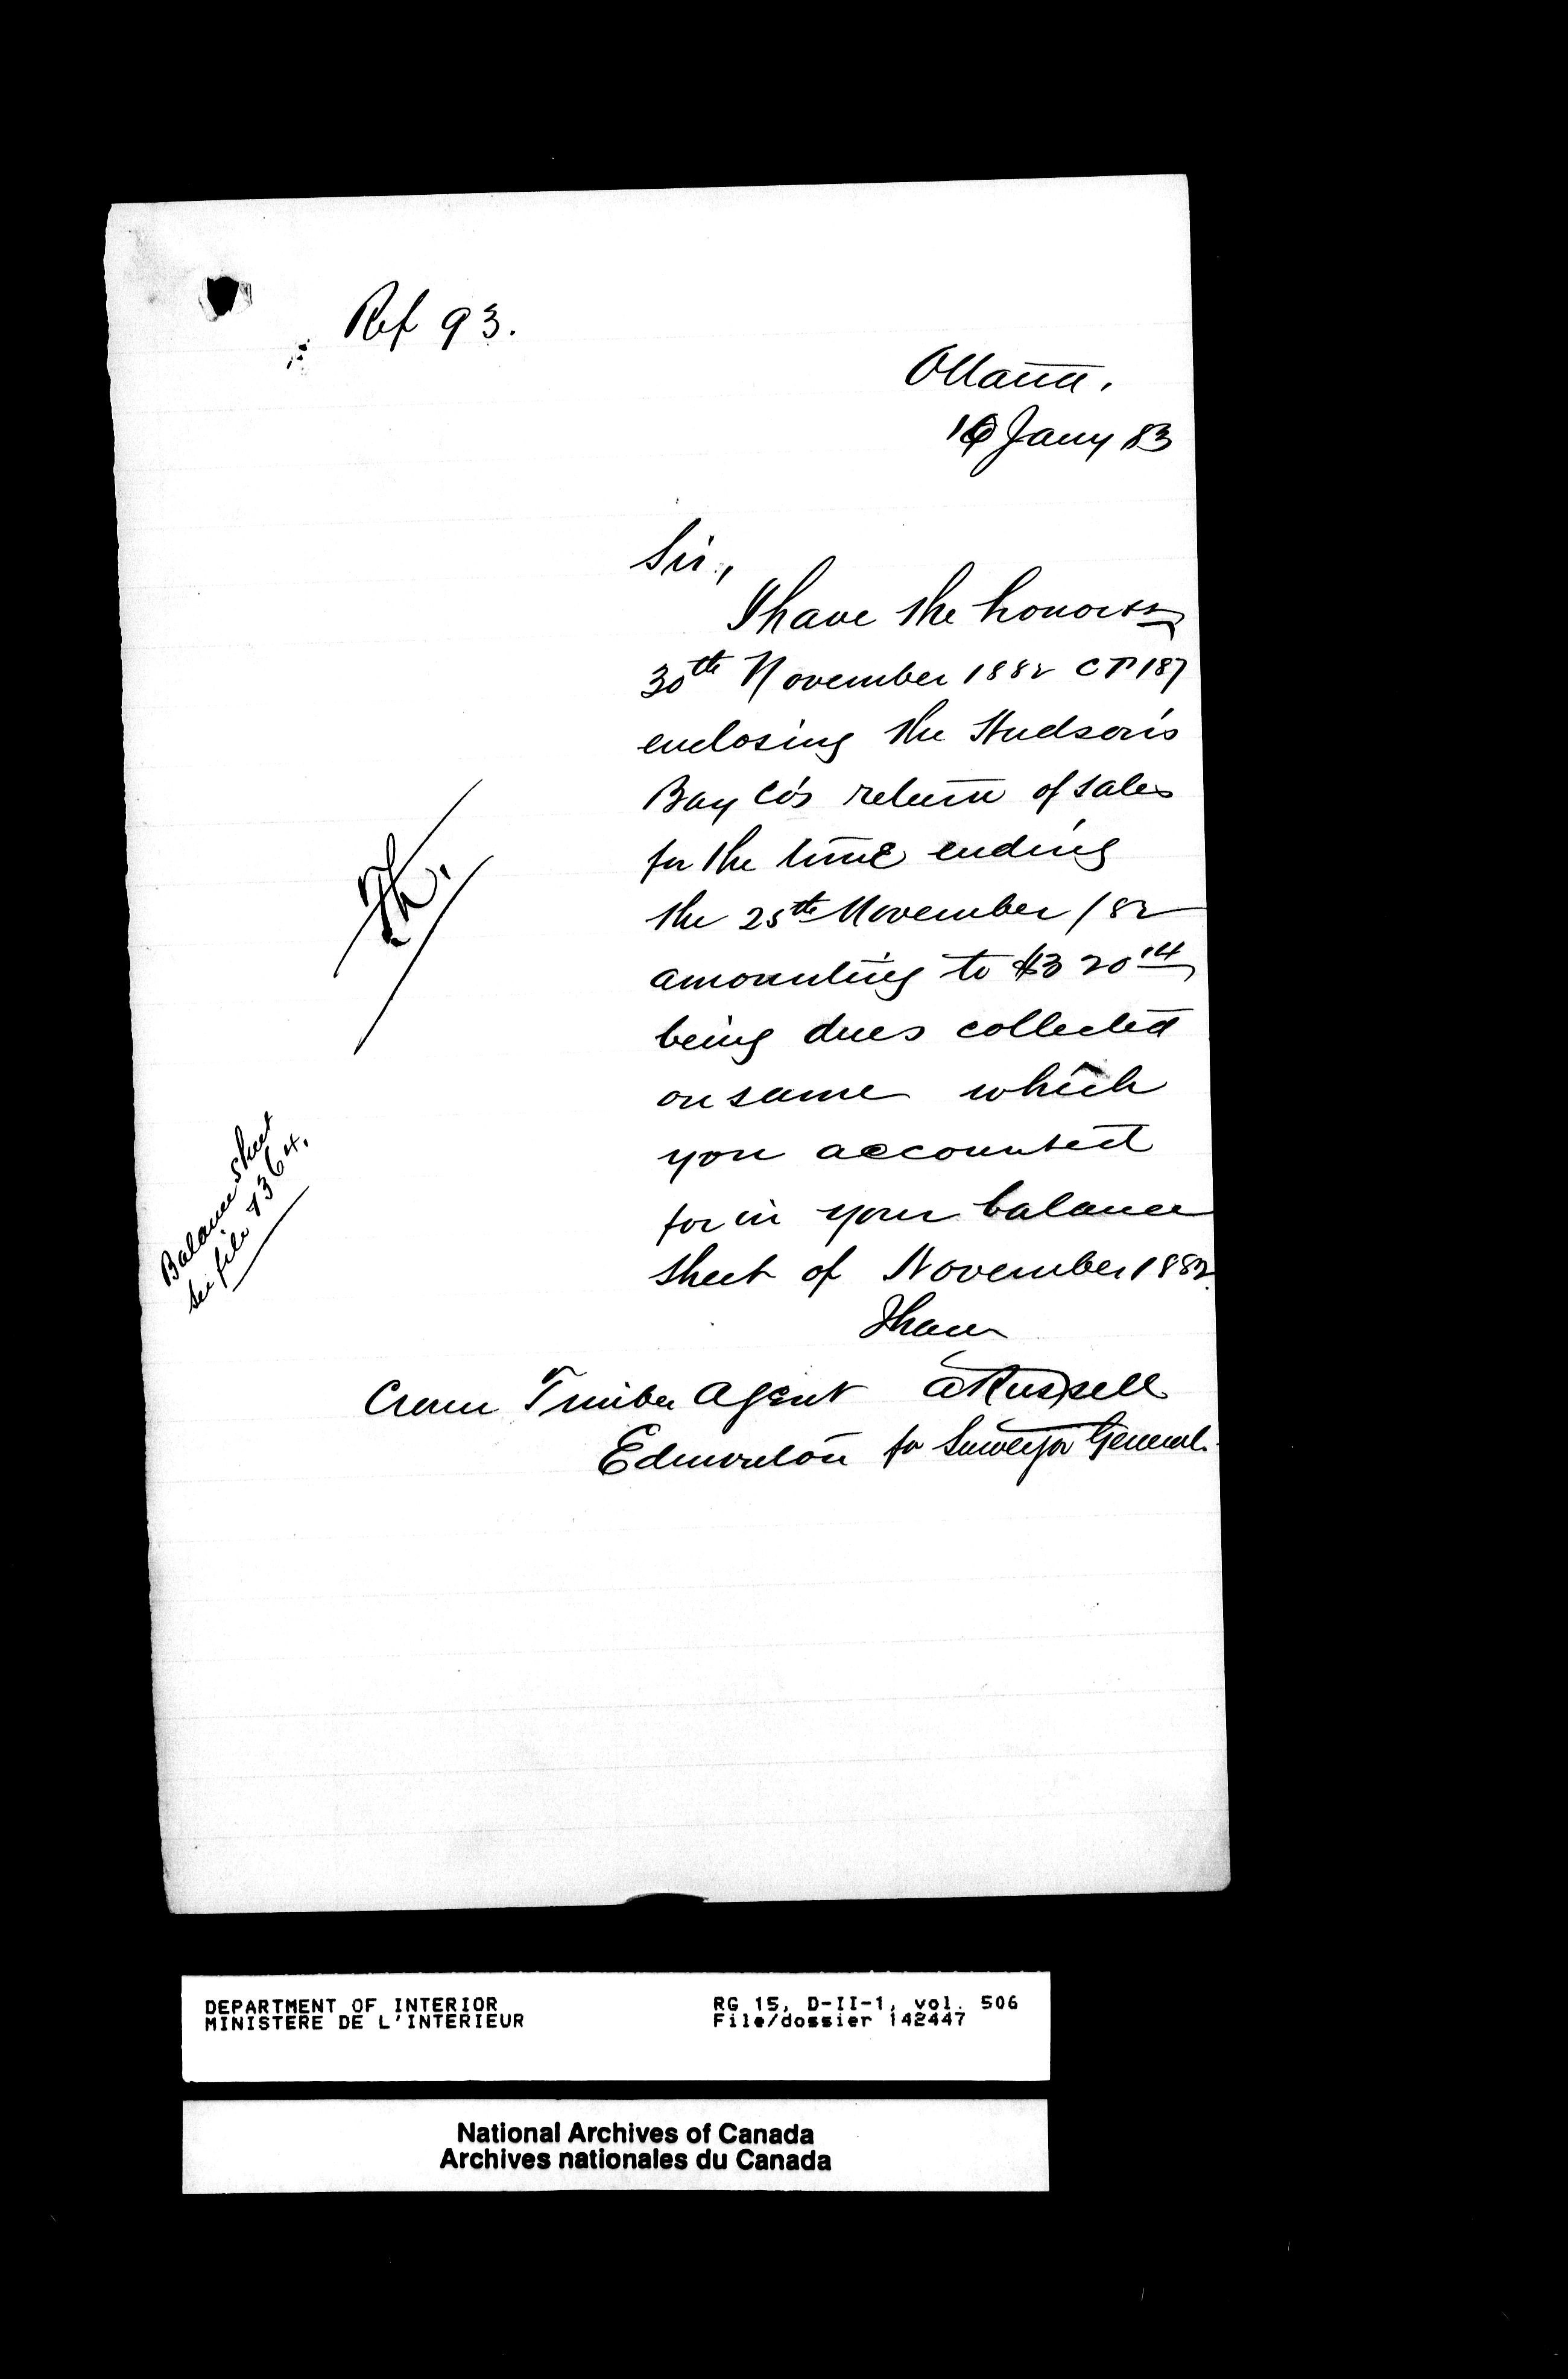 Ref 93.
Ottawa.
16 Jany 83
Sir,
I have the honor &c
30th November 1882 CT 187
enclosing the Hudson's
Bay Co's return of sales
for the time ending
the 25th November /82
amounting to $320 14
being dues collected
on same which
you accounted
for in your balance
sheet of November 1882.
I have
Crown Timber Agent A Russell
Edmonton for Surveyor General.
Balance Sheet
see file 7364.
DEPARTMENT OF INTERIOR RG 15, D-II-1, vol. 506
MINISTERE DE L'INTERIEUR File/dossier 142447
National Archives of Canada
Archives nationales du Canada